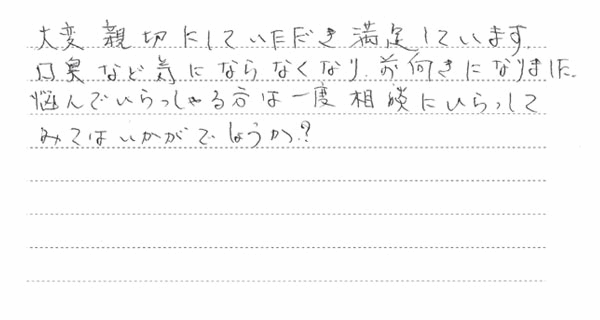 大変親切にしていただき満足しています。
口臭など気にならなくなり、前向きになりました。
悩んでいらっしゃる方は一度相談にいらっして
みてはいかがでしょうか?